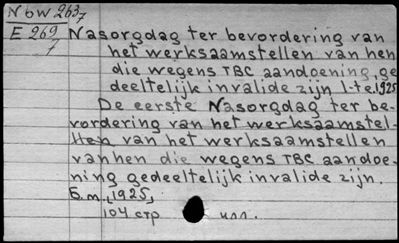 Nbw 263/7
E 269/7 Nasorgdag ter bevordering van
het werksaamstellen van hen
die wegens TBC aandoening, ge
deeltelijk invalide zijn 1-te.1925
De eerste Nasorgdag ter be-
vordering van het werksaamstel-
llen van het werksaamstellen
vanhen die wegens TBC aandoe-
ning gedeeltelijk invalide zijn.
Б.m., 1925,
104 стр илл.